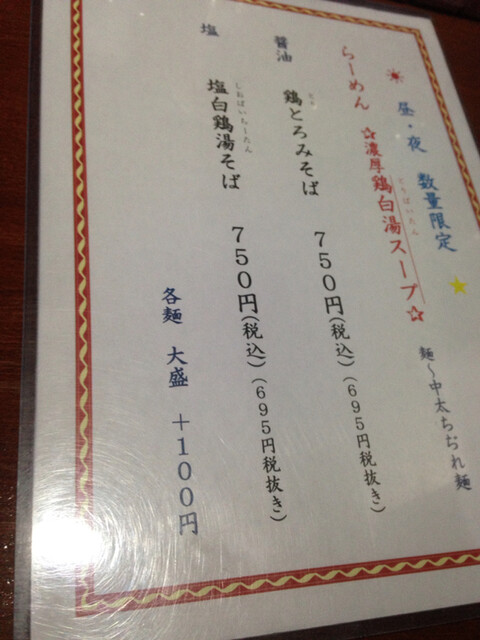 昼・夜 数量限定
麺～中太ちぢれ麺
らーめん ☆濃厚鶏白湯スープ☆
とりぱいたん
醤油 鶏とろみそば 750円(税込)(695円税抜き)
とり
塩 塩白鶏湯そば 750円(税込)(695円税抜き)
しおぱいちーたん
各麺 大盛 +100円